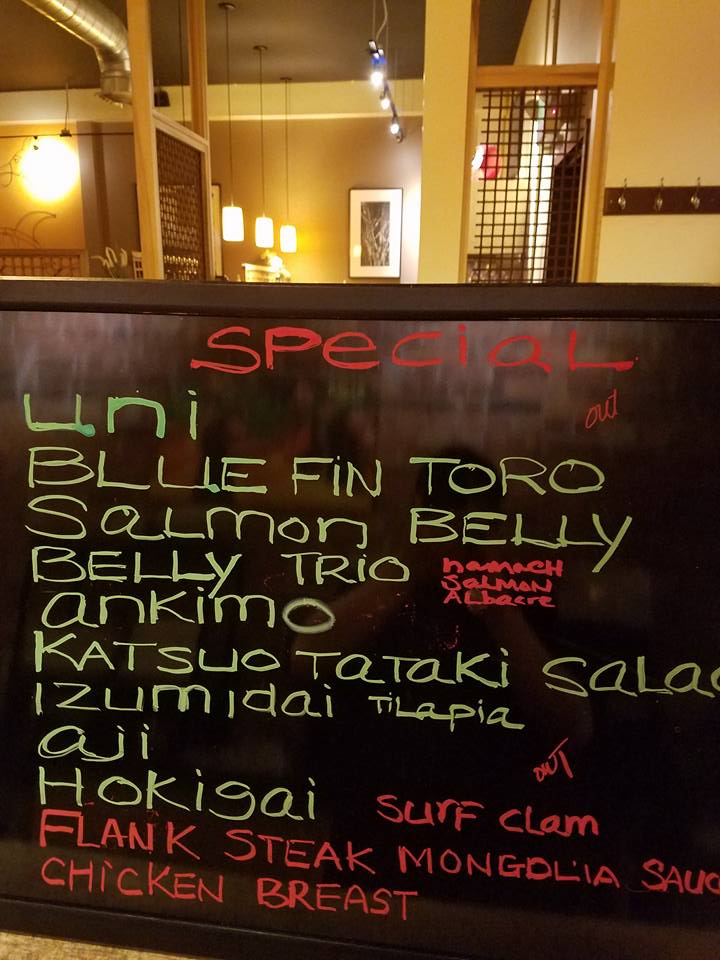 SPeciaL
uni out
BLUE FiN TORO
SaLmon BELLY
BELLY TRIO
HamacH
SaLMON
ALbacre
ankimo
KATSUO TaTaKi
Izumidai TiLapia
aji out
HoKigai SurF cLam
FLANK STEAK MONGOLIA
CHiCKEN BREAST